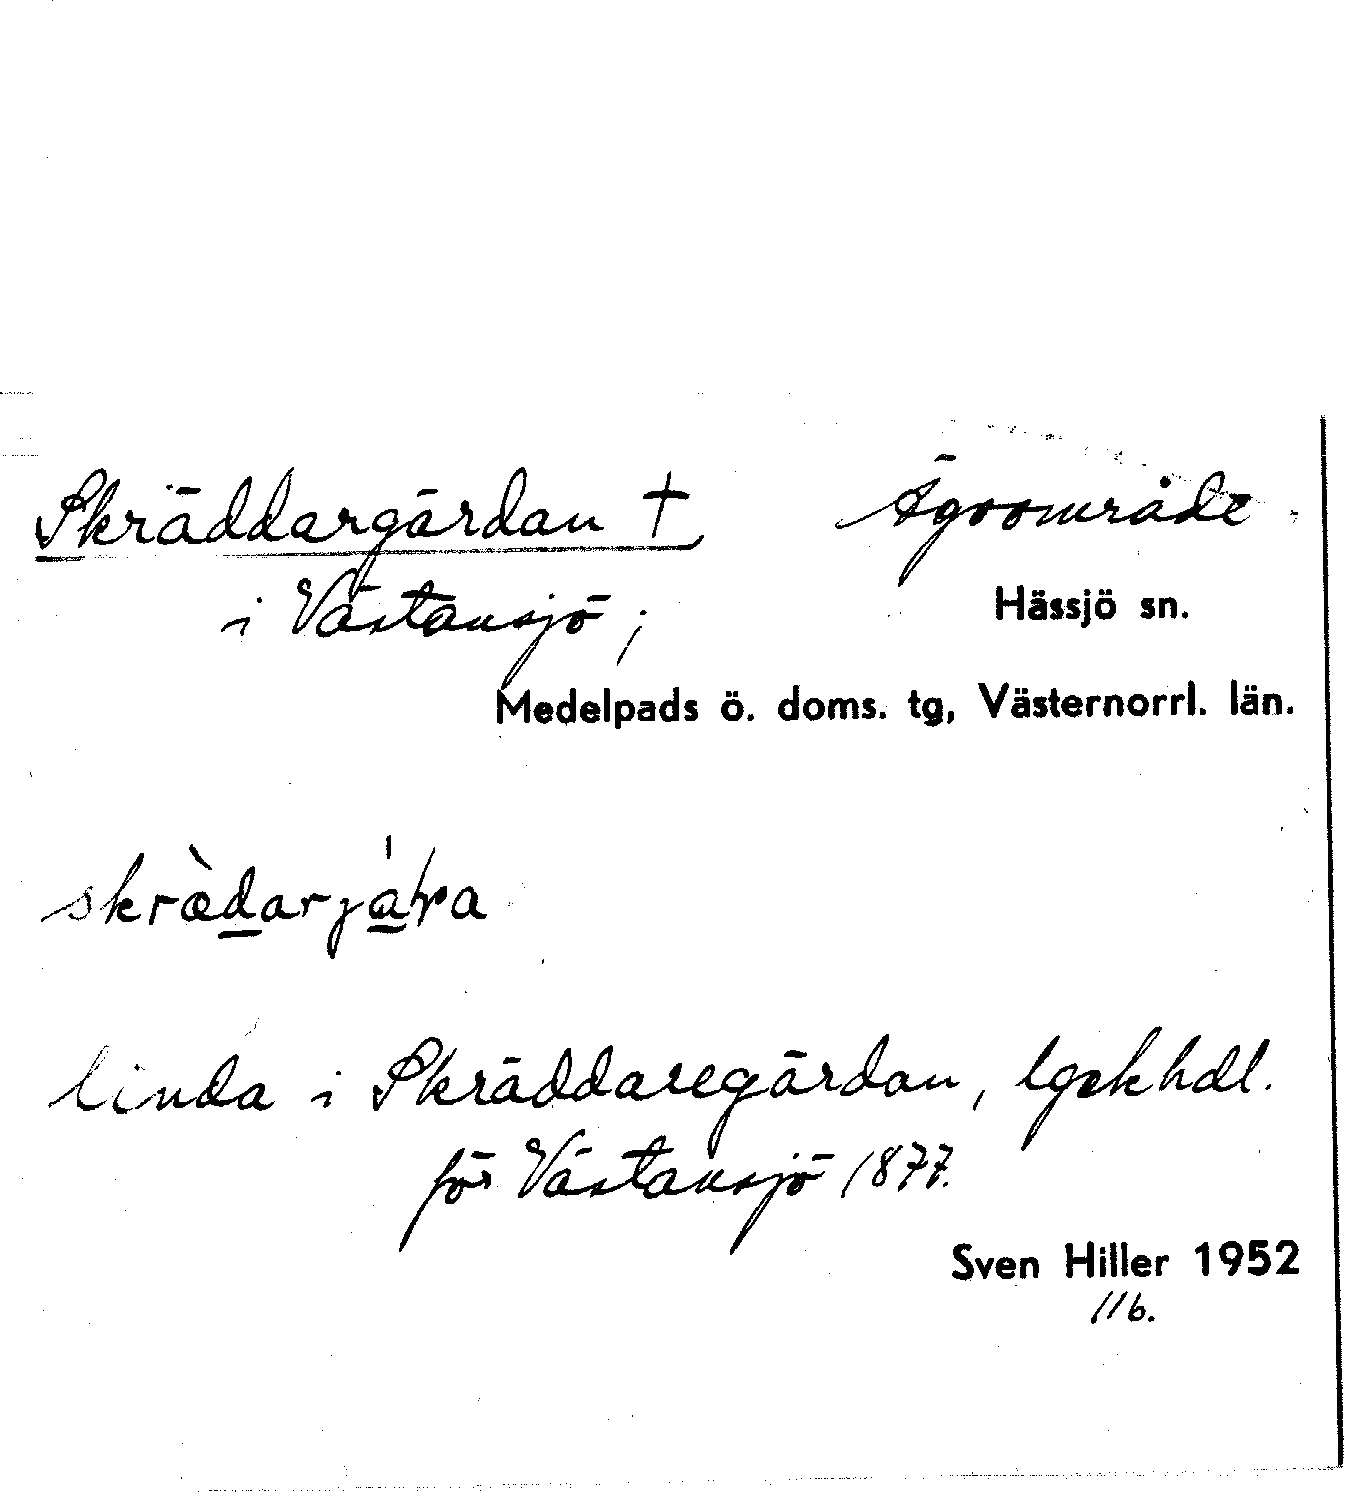 Skräddargärdan † Ägoområde
i Västansjö; Hässjö sn.
Medelpads ö. doms. tg, Västernorrl. län.
linda i Skräddaregärdan, lgskhdl.
för Västansjö 1877.
Sven Hiller 1952
116.